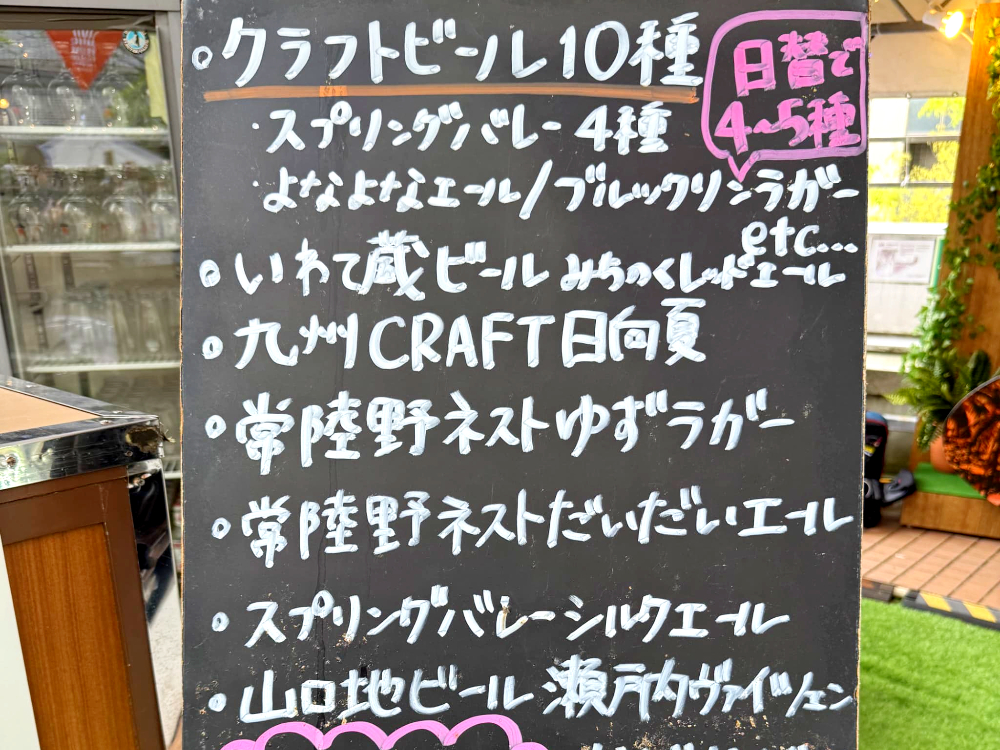 。クラフトビール10種
日替で
4~5種
・スプリングバレー 4種
・よなよなエール/ブルックリンラガー
etc...
。いわて蔵ビール みちのくレッドエール
。九州CRAFT日向夏
。常陸野ネストゆずラガー
。常陸野ネストだいだいエール
。スプリングバレーシルクエール
。山口地ビール 瀬戸内ヴァイツェン